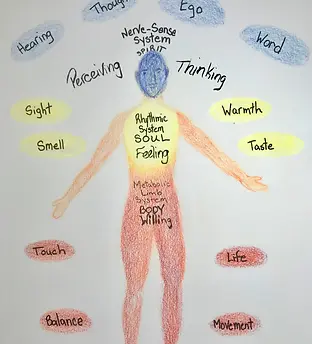 Thoug
Ego
Hearing
Nerve-Sense
System
SPIRIT
Word
Perceiving
Thinking
Sight
Warmth
Rhythmic
System
SOUL
Feeling
Smell
Taste
Metabolic
Limb
System
BODY
Willing
Touch
Life
Balance
Movement